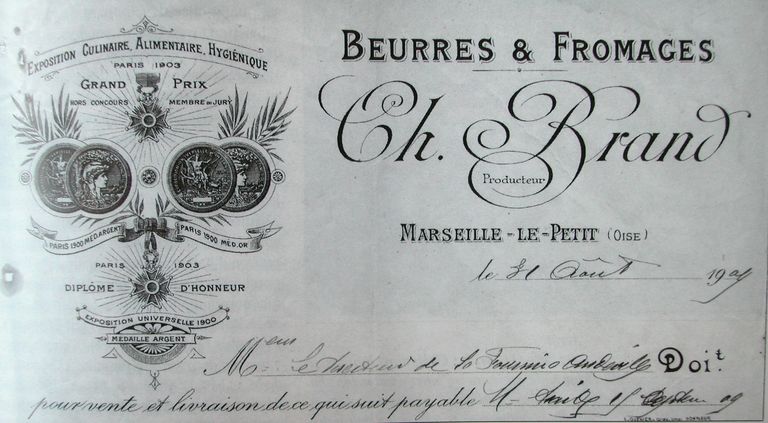 EXPOSITION CULINAIRE, ALIMENTAIRE, HYGIÉNIQUE
PARIS 1903
GRAND PRIX
HORS CONCOURS MEMBRE DU JURY
PARIS 1900 MED. ARGENT
PARIS 1900 MÉD. OR
PARIS 1903
DIPLÔME D'HONNEUR
EXPOSITION UNIVERSELLE 1900
MEDAILLE ARGENT
BEURRES & FROMAGES
Ch. Brand
Producteur
MARSEILLE-LE-PETIT (OISE)
le 31 Août 1909
de Doit
pour vente et livraison de ce qui suit payable 09